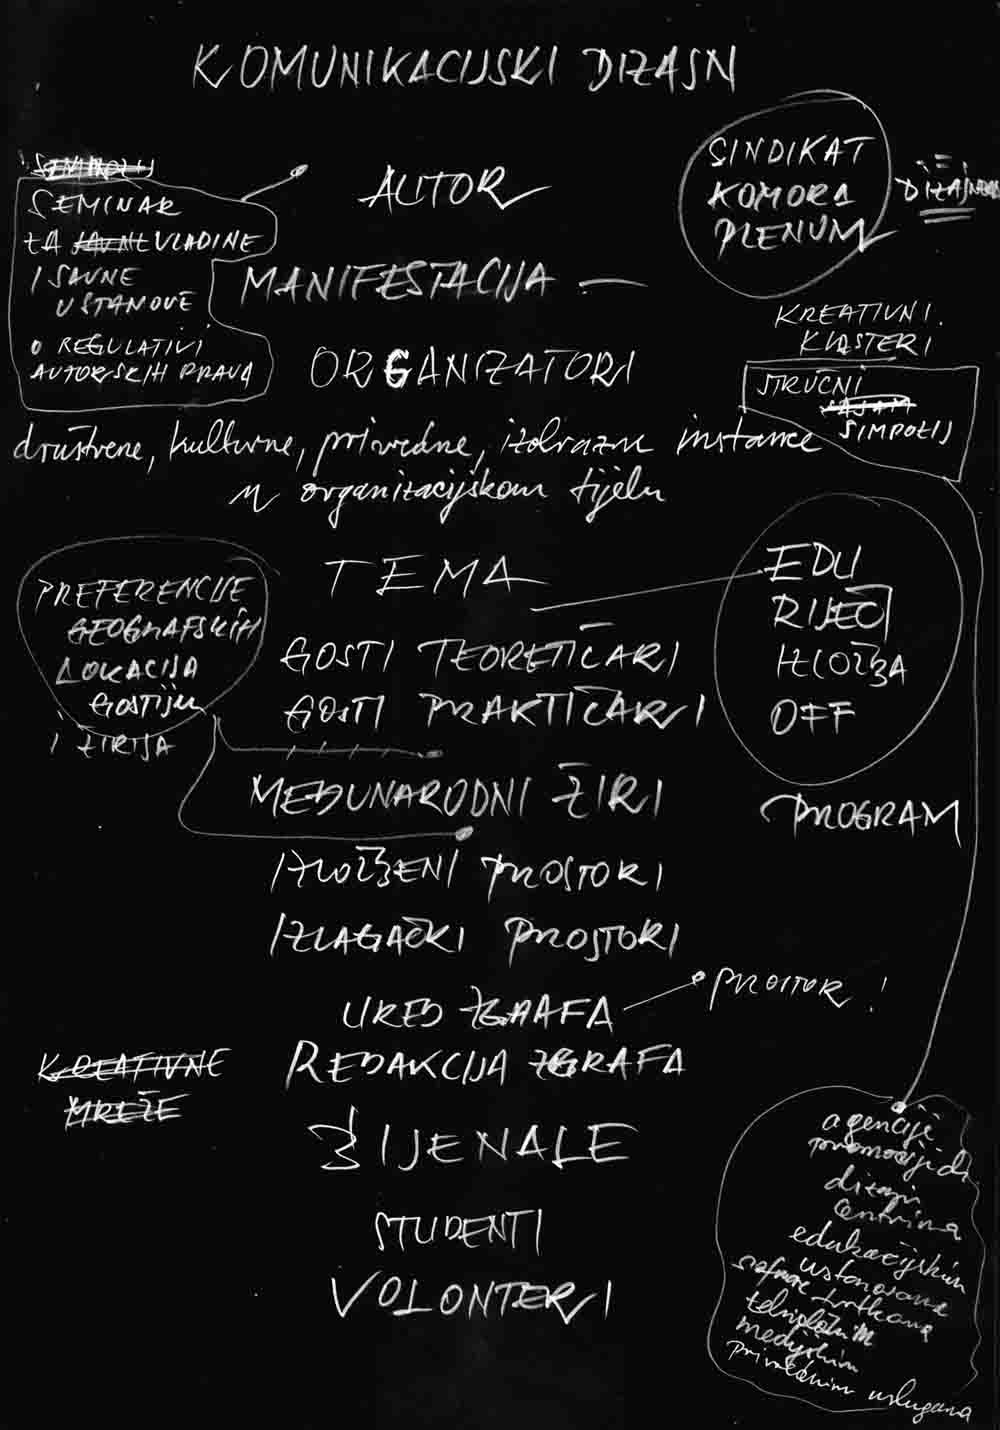 KOMUNIKACIJSKI DIZAJN
SIMPOZIJ
SEMINAR
ZA JAVNE VLADINE
I JAVNE
USTANOVE
O REGULATIVI
AUTORSKIH PRAVA
AUTOR
SINDIKAT
KOMORA
PLENUM
DIZAJNERA
MANIFESTACIJA —
KREATIVNI
KLASTERI
ORGANIZATORI
STRUČNI
SAJAM
SIMPOZIJ
društvene, kulturne, privredne, izobrazne instance
u organizacijskom tijelu
TEMA
EDU
RIJEČ
IZLOŽBA
OFF
PROGRAM
PREFERENCIJE
GEOGRAFSKIH
LOKACIJA
GOSTIJU
I ŽIRIJA
GOSTI TEORETIČARI
GOSTI PRAKTIČARI
MEĐUNARODNI ŽIRI
IZLOŽBENI PROSTORI
IZLAGAČKI PROSTORI
URED ZGRAFA
PROSTOR !
REDAKCIJA ZGRAFA
KREATIVNE
MREŽE
BIJENALE
STUDENTI
VOLONTERI
agencije
promocijidi
dizajn
centrima
edukacijskim
ustanovama
software tvrtkama
tehnološkim
medijskim
privrednim uslugama